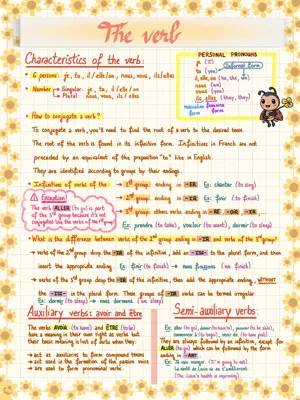 The verb
Characteristics of the verb:
• 6 persons: je, tu, il/elle/on, nous, vous, ils/elles
• Number → Singular: je, tu, il/elle/on
→ Plural: nous, vous, ils/elles
PERSONAL PRONOUNS
je (I)
tu (you) → Informal form
il, elle, on (he, she, we)
nous (we)
vous (you)
ils, elles (they, they)
masculine form feminine form
• How to conjugate a verb?
To conjugate a verb, you'll need to find the root of a verb to the desired tense.
The root of the verb is found in its infinitive form. Infinitives in French are not
preceded by an equivalent of the preposition "to" like in English.
They are identified according to groups by their endings:
• Infinitives of verbs of the → 1st group: ending in -ER Ex: chanter (to sing)
→ 2nd group: ending in -IR Ex: finir (to finish)
→ 3rd group: others verbs ending in -RE -OIR -IR
Ex: prendre (to take), vouloir (to want), dormir (to sleep)
Exception!
The verb ALLER (to go) is part
of the 3rd group because it's not
conjugated like the verbs of the 1st
• What is the difference between verbs of the 2nd group ending in -IR and verbs of the 3rd group?
→ verbs of the 2nd group drop the -IR of the infinitive, add an -ISS- to the plural form, and then
insert the appropriate ending. Ex: finir (to finish) → nous finissons (we finish)
→ verbs of the 3rd group drop the -IR of the infinitive, then add the appropriate ending, WITHOUT
the -ISS- in the plural form. These groups of -IR verbs can be termed irregular.
Ex: dormir (to sleep) → nous dormons (we sleep)
Auxiliary verbs: avoir and être
The verbs AVOIR (to have) and ÊTRE (to be)
have a meaning in their own right as verbs but
their basic meaning is lost of work when they:
→ act as auxiliaries to form compound tenses
→ are used in the formation of the passive voice
→ are used to form pronominal verbs
Semi-auxiliary verbs:
Ex: aller (to go), devoir (to have to), pouvoir (to be able),
commencer à (to begin), venir de (to have just)
They are always followed by an infinitive, except for
ALLER (to go) which can be followed by the form
ending in -ANT
Ex: Je vais manger. (I'm going to eat)
La santé de Lucie va en s'améliorant.
(The Lucie's health is improving)